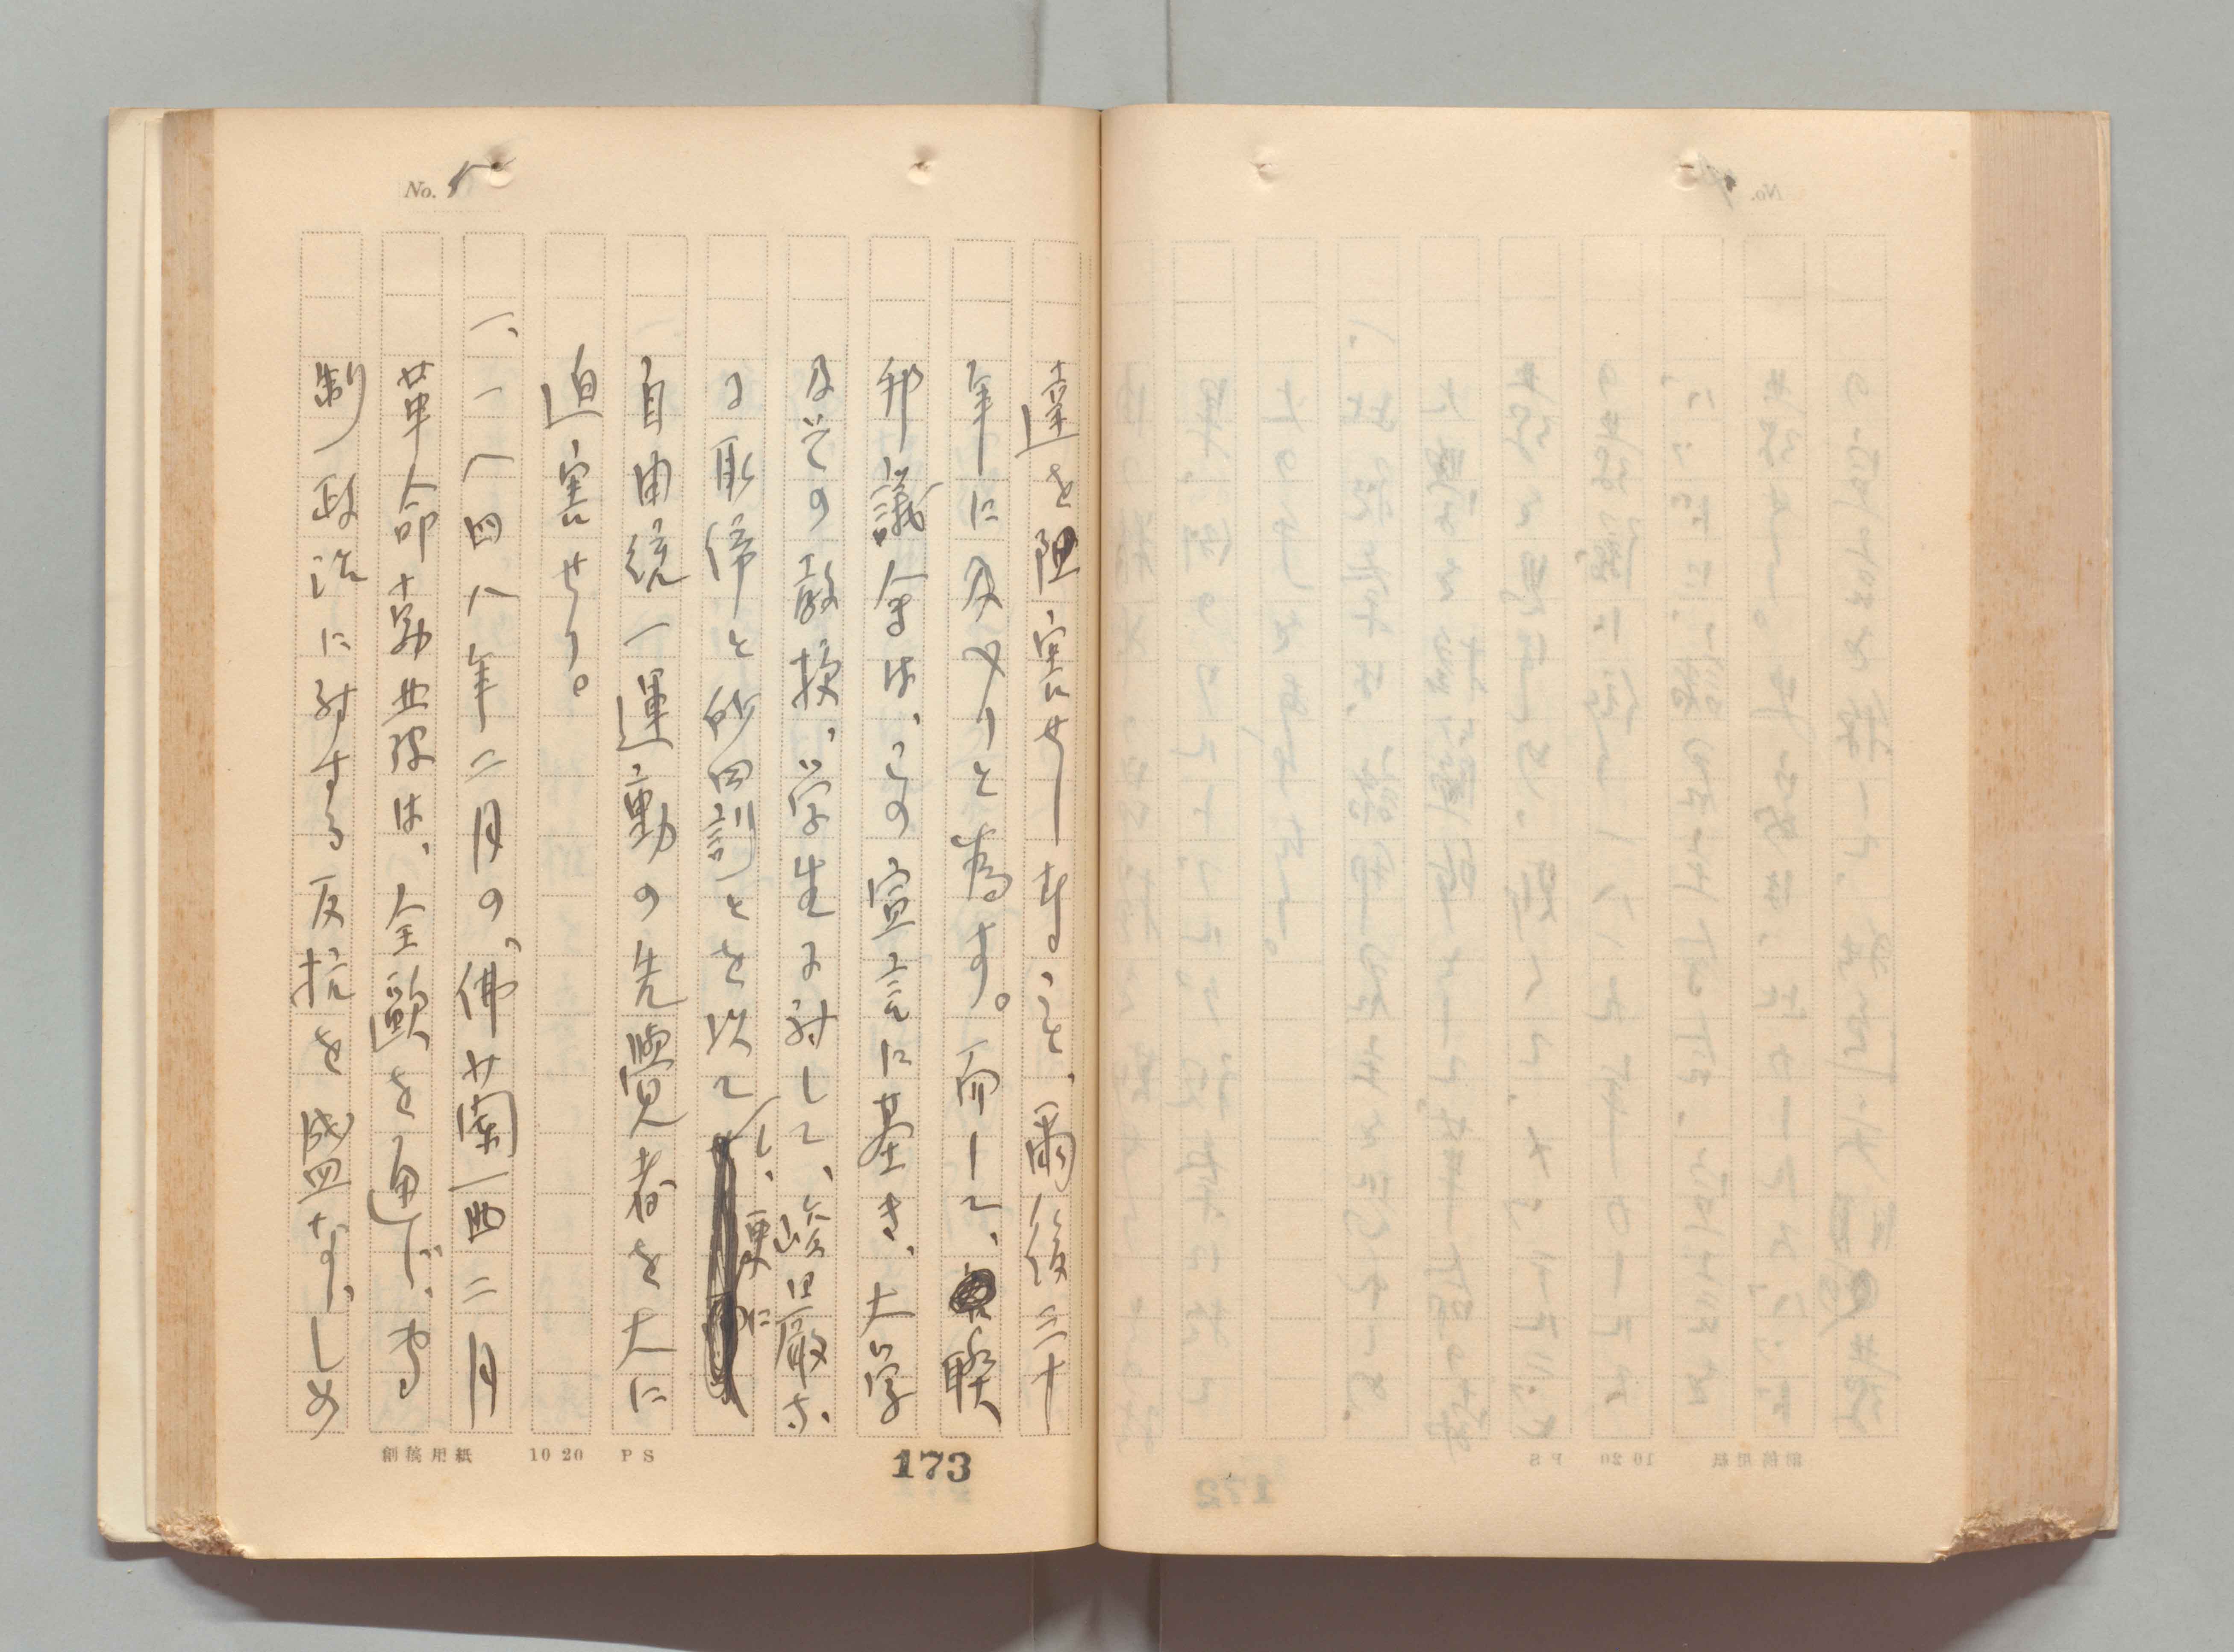 No. 5
達を阻害せしこと、爾後三十
年に及べりと為す。而して、聯
邦議会は、この宣言に基き、大学
及その教授、学生に対して、峻厳な
る取締と罰とを以てし、更に
自由統一運動の先覺者を大に
迫害せり。
一、一八四八年二月の、佛蘭西二月
革命勃発後は、全歐を通じ、専
制政治に対する反抗を盛なら、しめ
創稿用紙 10 20 PS
173